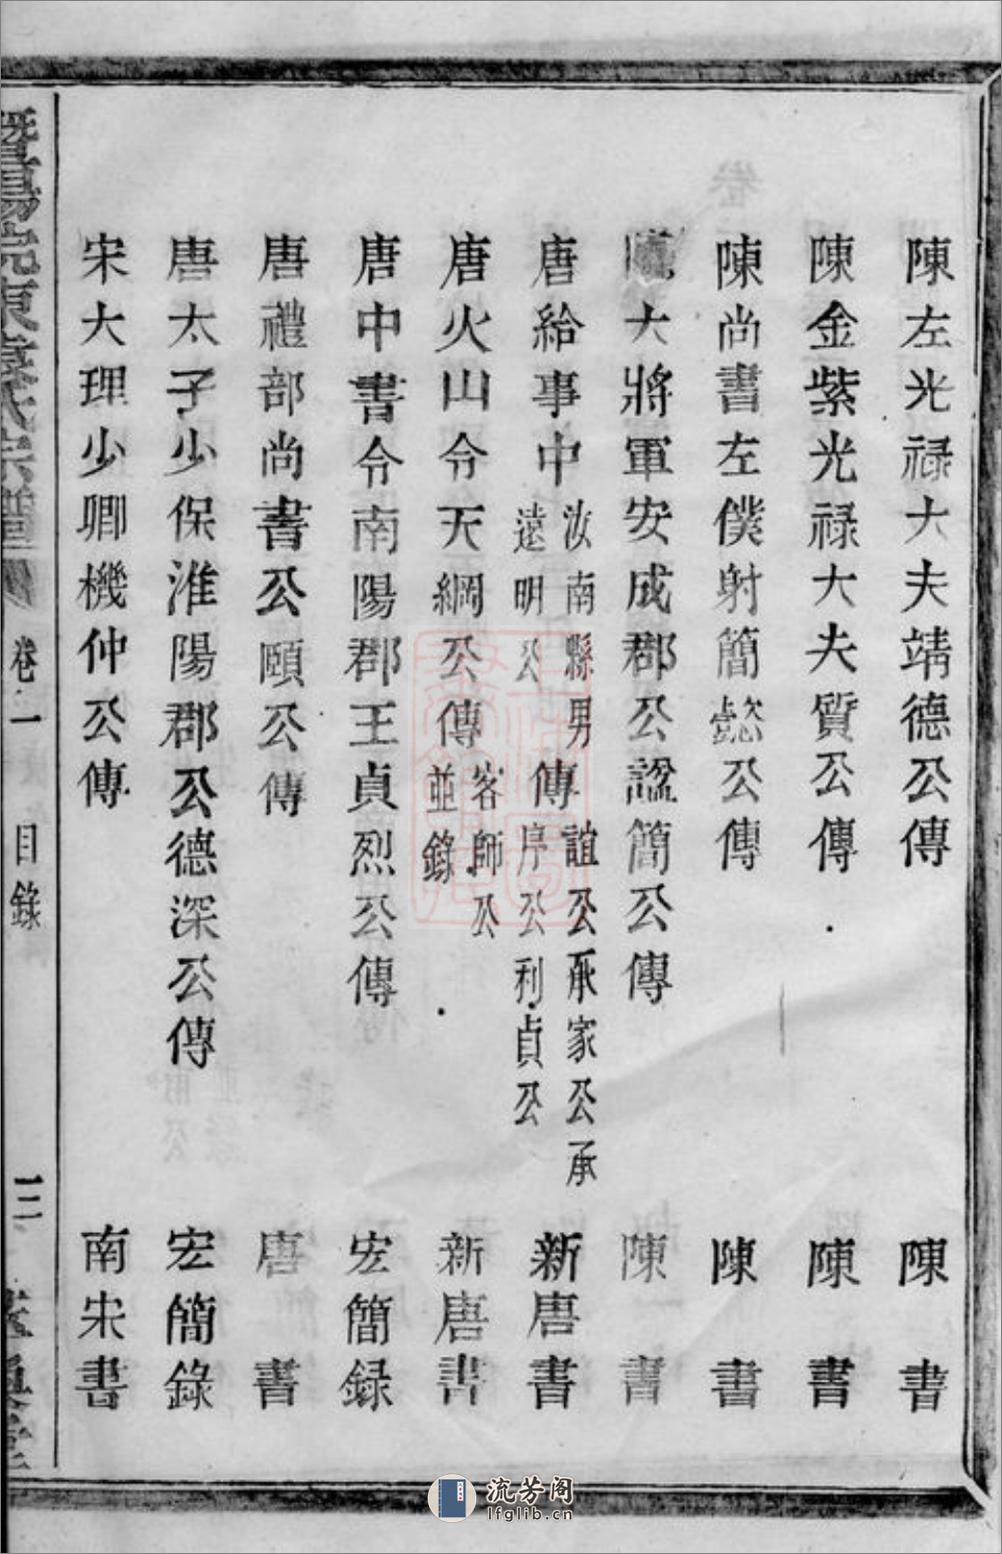 陳左光禄大夫靖德公傳 陳書
陳金紫光禄大夫質公傳 陳書
陳尚書左僕射簡懿公傳 陳書
大將軍安成郡公諡簡公傳 陳書
唐給事中汝南縣男遠明公傳誼公承家公承序公利貞公 新唐書
唐火山令天綱公傳客師公並錄 新唐書
唐中書令南陽郡王貞烈公傳 宏簡録
唐禮部尚書公頤公傳 唐書
唐太子少保淮陽郡公德深公傳 宏簡錄
宋大理少卿機仲公傳 南宋書
暨陽 東袁氏宗譜
卷一
目錄
三
流芳阁
lfglib.cn